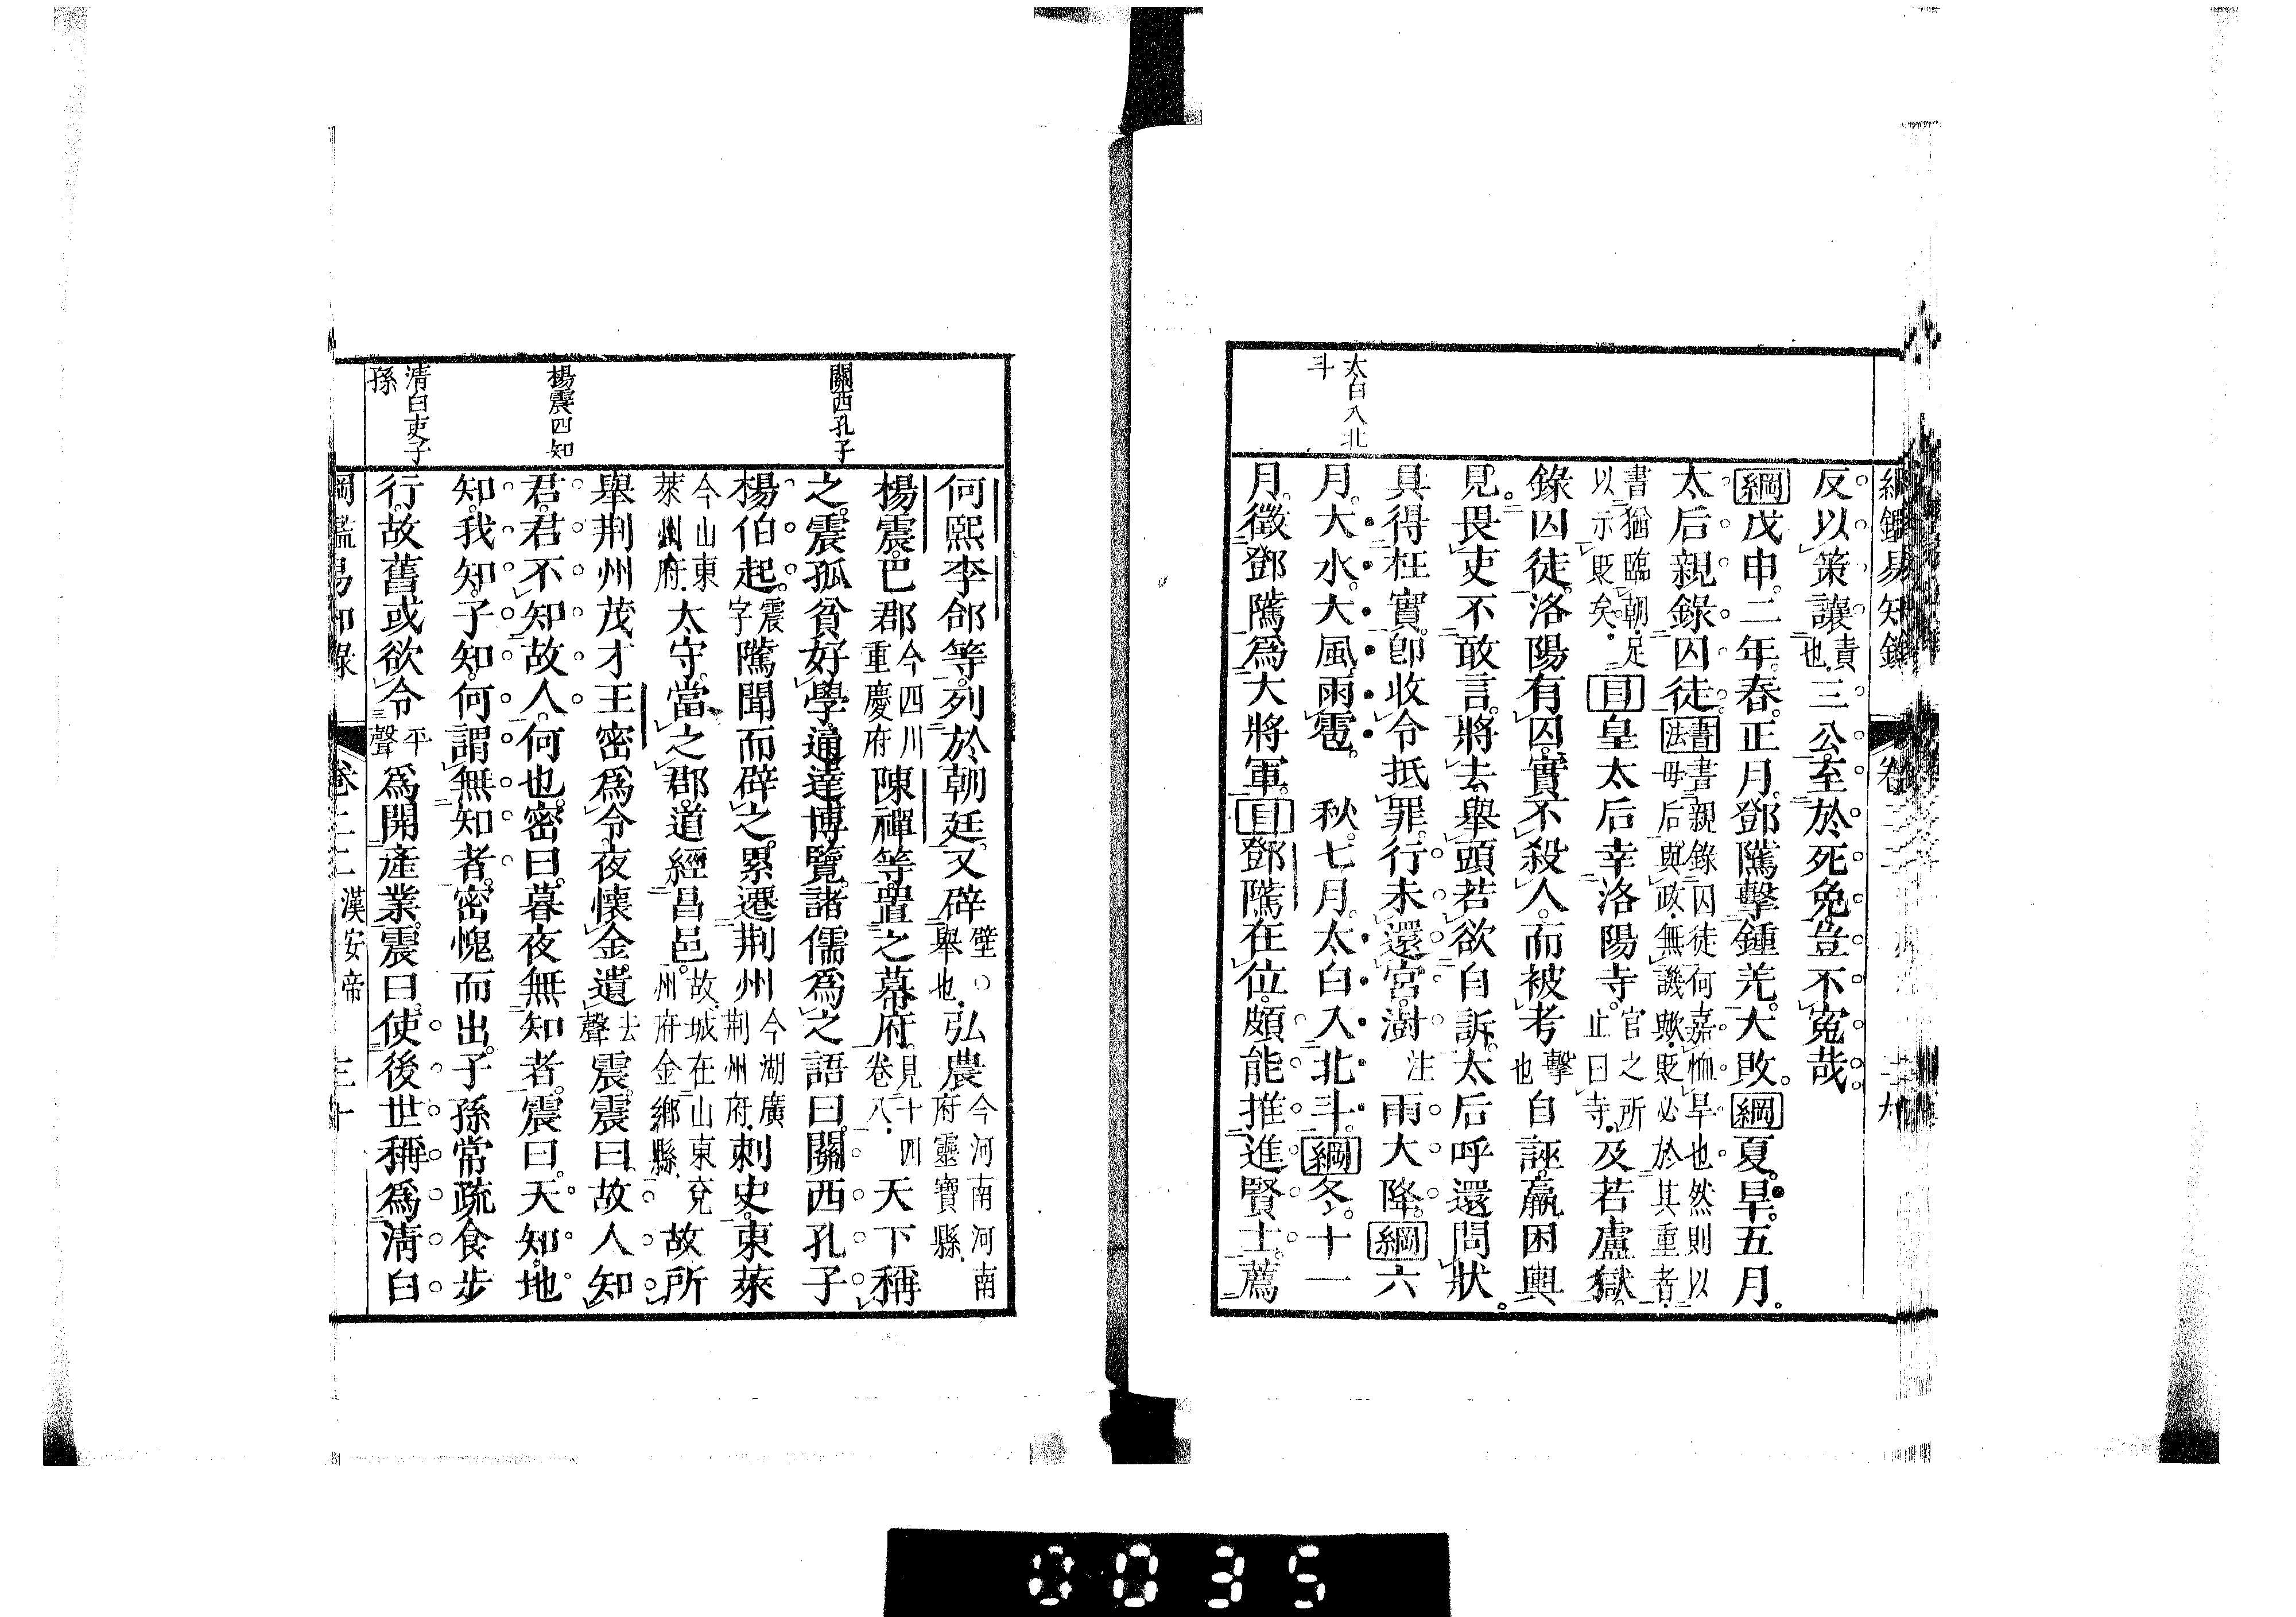 太白入北
斗
反以策讓責也三公至於死免豈不寃哉
綱戊申二年春正月鄧隲擊鍾羌大敗綱夏旱五月
太后親錄囚徒書法書親錄囚徒何嘉恤旱也然則以母后與政無譏歟貶必於其重者
書猶臨朝足以示貶矣目皇太后幸洛陽寺官之所止曰寺及若盧獄
錄囚徒洛陽有囚實不殺人而被考擊也自誣羸困輿
見畏吏不敢言將去舉頭若欲自訴太后呼還問狀
具得枉實卽收令抵罪行未還宮澍注雨大降綱六
月大水大風雨雹 秋七月太白入北斗綱冬十一
月徵鄧隲爲大將軍目鄧隲在位頗能推進賢士薦
關西孔子
楊震四知
清白吏子
孫
何熙李郃等列於朝廷又辟壁○舉也弘農今河南河南府靈寶縣
楊震巴郡今四川重慶府陳禪等置之幕府見十四卷八天下稱
之震孤貧好學通達博覽諸儒爲之語曰關西孔子
楊伯起震字隲聞而辟之累遷荆州今湖廣荆州府刺史東萊
今山東萊州府太守當之郡道經昌邑故城在山東兗州府金鄉縣故所
舉荆州茂才王密爲令夜懷金遺去聲震震曰故人知
君君不知故人何也密曰暮夜無知者震曰天知地
知我知子知何謂無知者密愧而出子孫常疏食步
行故舊或欲令平聲爲開產業震曰使後世稱爲清白
綱鑑易知錄 卷二二 漢安帝 三十
0035